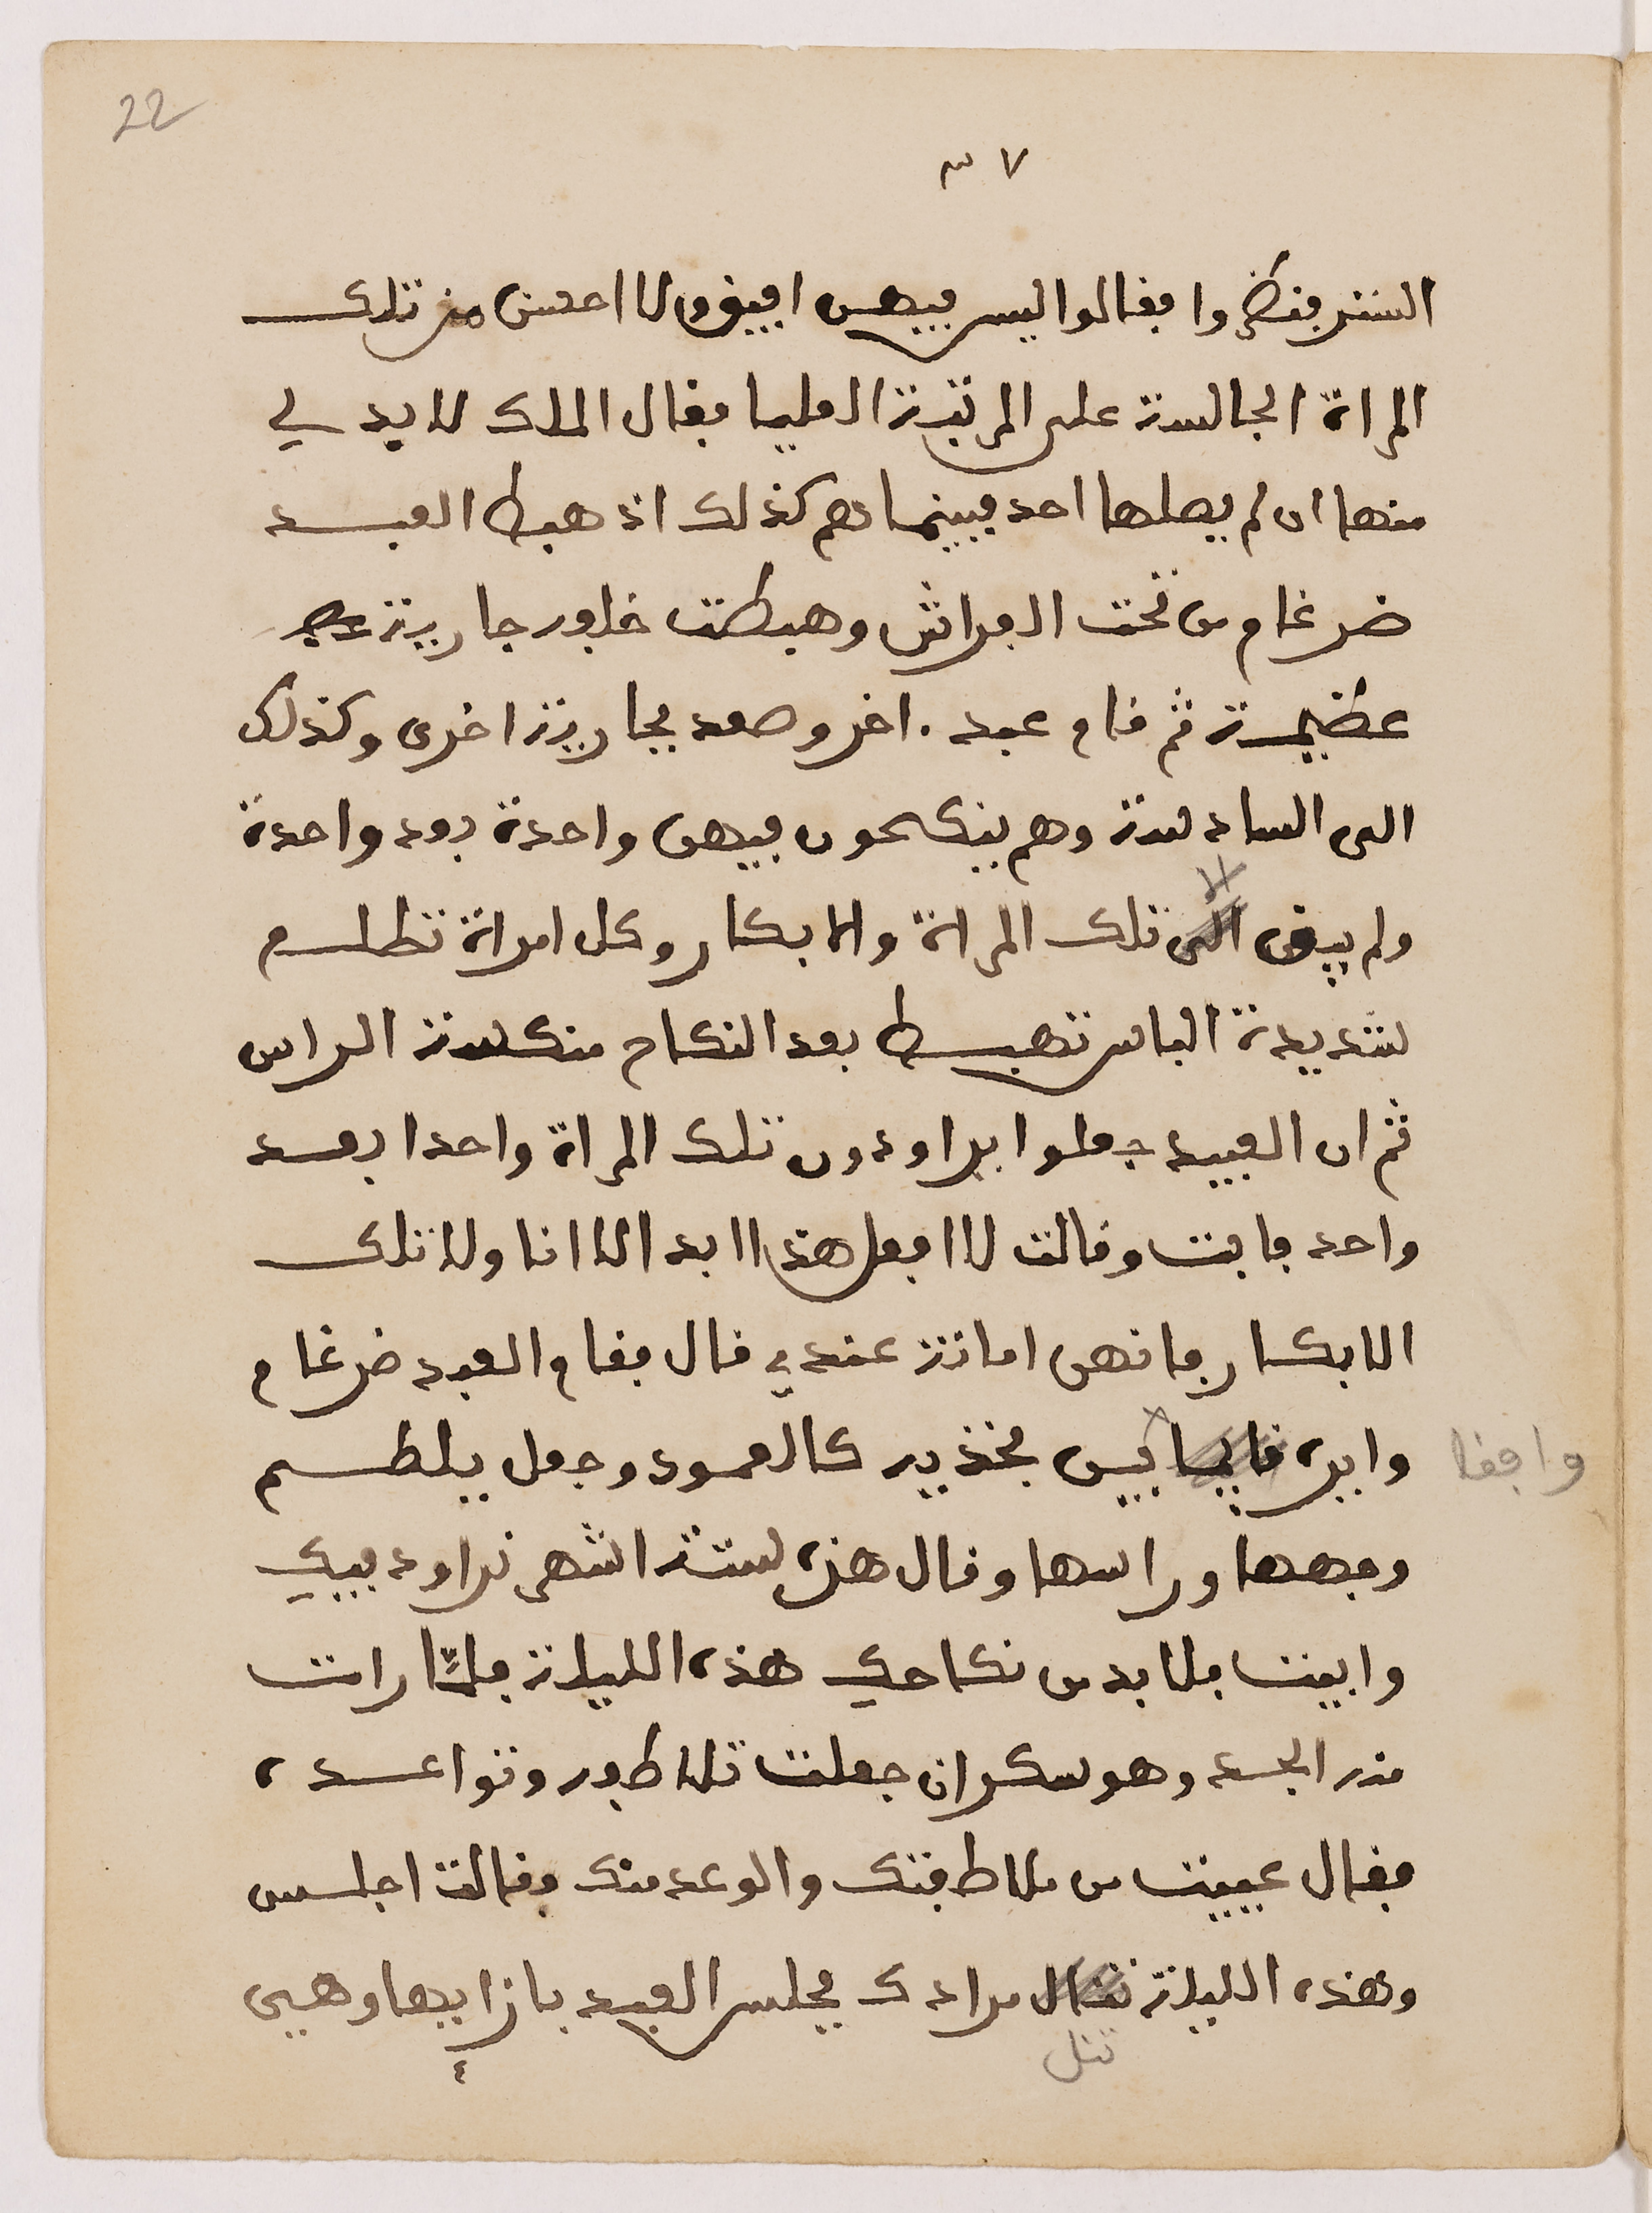 22
٣٧
الستر فنظروا فقالوا ليس فيهن اليق ولا احسن من تلك
المراة الجالسة على المرتبة العليا فقال الملك لا بد لي
منها ان لم يصلها احد فبينما هم كذلك اذ هبط العبد
ضرغام من تحت الفراش وهبطت خلفه جارية
عظيمة ثم قام عبد اخر وصعد بجارية اخرى وكذلك
الى السادسة وهم ينكحون فيهن واحدة بعد واحدة
ولم يبق الى تلك المراة والابكار وكل امراة تطلع
الا
شديدة الباس تهبط بعد النكاح منكسة الراس
ثم ان العبيد جعلوا يراودون تلك المراة واحدا بعد
واحد فابت وقالت لا افعل هذا ابدا لا انا ولا تلك
الابكار فانهن امانة عندي قال فقام العبد ضرغام
وايره قايما بين فخذيه كالعمود وجعل يلطم
واقفا
وجهها وراسها وقال هذه ستة اشهر نراود فيك
وابيت فلا بد من نكاحك هذه الليلة فلمّا رات
منه الجد وهو سكران جعلت تلاطفه وتواعده
فقال عييت من ملاطفتك والوعد منك فقالت اجلس
وهذه الليلة تنال مرادك فجلس العبد بازايها وهي
تنل